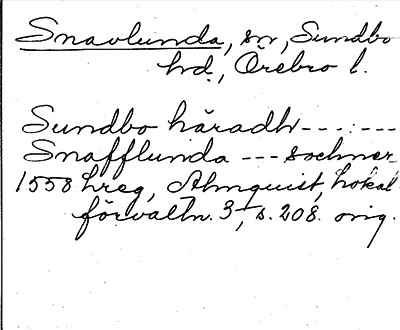 Snavlunda, sn, Sundbo
hd, Örebro l.
Sundbo häradh --- : ---
Snafflunda --- sochner
1558 hreg, Almquist, Lokal
förvaltn. 3, s. 208. orig.